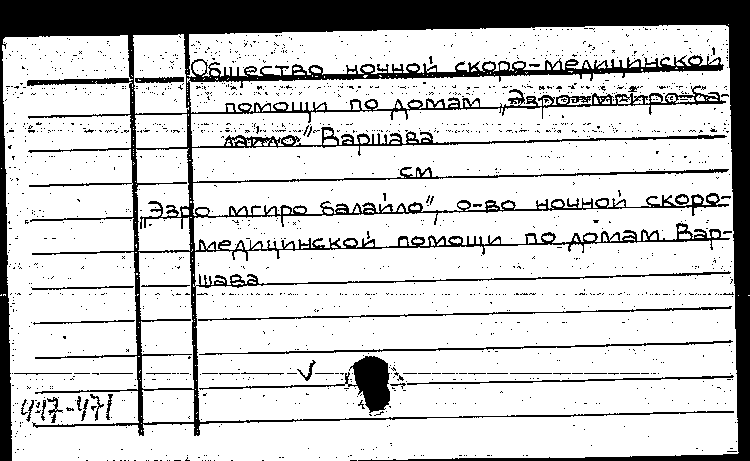 Общество ночной скоро-медицинской
помощи по домам „Эзро-мгиро-ба-
лайло." Варшава
см
„Эзро мгиро балайло", о-во ночной скоро-
медицинской помощи по домам. Вар-
шава.
447-471